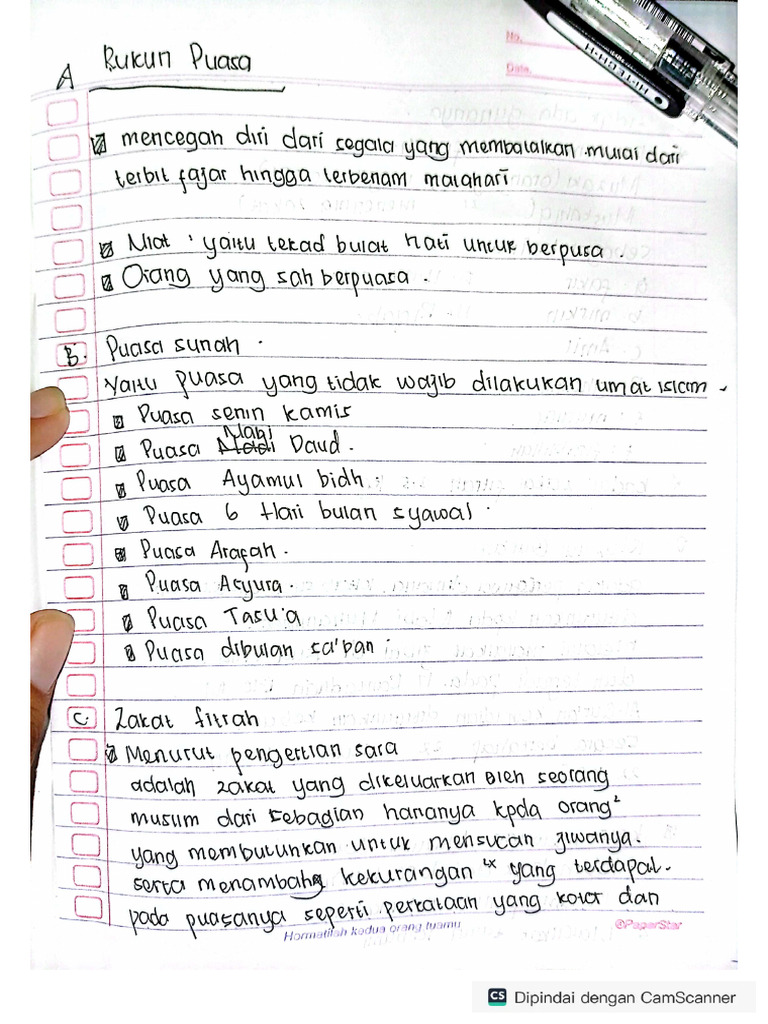 No.
Date.
HI-TECH-H
A Rukun Puasa
mencegah diri dari segala yang membatalkan mulai dari
terbit fajar hingga terbenam matahari
Niat, yaitu tekad bulat hati untuk berpusa.
Orang yang sah berpuasa.
B. Puasa sunah.
Yaitu puasa yang tidak wajib dilakukan umat islam
Puasa senin kamis
Puasa Nabi Daud.
Puasa Ayamul bidh
Puasa 6 Hari bulan syawal.
Puasa Arafah.
Puasa Asyura.
Puasa Tasu'a
Puasa dibulan sa'ban.
C. Zakat fitrah
Menurut pengertian sara
adalah zakat yang dikeluarkan oleh seorang
muslim dari sebagian hartanya kpda orang²
yang membutuhkan untuk mensucan jiwanya.
serta menambahg kekurangan ²x yang terdapat.
pada puasanya seperti perkataan yang kotor dan
Hormatilah kedua orang tuamu
©PaperStar
CS Dipindai dengan CamScanner